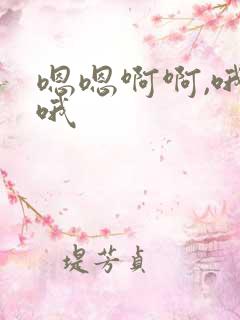 嗯嗯啊啊,哦
哦
堤芳貞